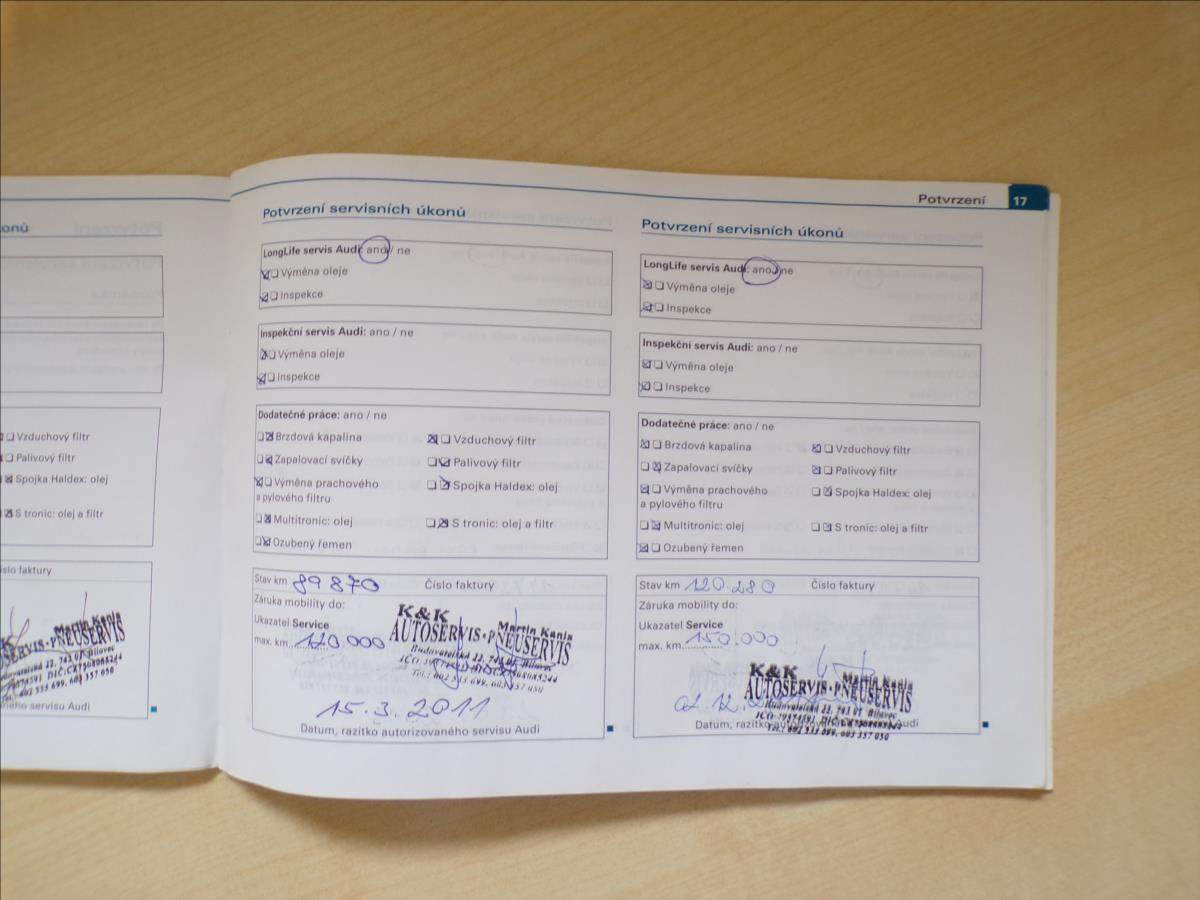 onů
Vzduchový filtr
Palivový filtr
Spojka Haldex: olej
S tronic: olej a filtr
íslo faktury
AUTOSERVIS·PNEUSERVIS
Martin Kania
ného servisu Audi
Potvrzení servisních úkonů
LongLife servis Audi: ano / ne
Výměna oleje
Inspekce
Inspekční servis Audi: ano / ne
Výměna oleje
Inspekce
Dodatečné práce: ano / ne
Brzdová kapalina
Vzduchový filtr
Zapalovací svíčky
Palivový filtr
Výměna prachového
a pylového filtru
Spojka Haldex: olej
Multitronic: olej
S tronic: olej a filtr
Ozubený řemen
Stav km 89 870
Číslo faktury
Záruka mobility do:
Ukazatel Service
max. km 120.000
K&K
Martin Kania
AUTOSERVIS·PNEUSERVIS
15.3.2011
Datum, razítko autorizovaného servisu Audi
Potvrzení 17
Potvrzení servisních úkonů
LongLife servis Audi: ano / ne
Výměna oleje
Inspekce
Inspekční servis Audi: ano / ne
Výměna oleje
Inspekce
Dodatečné práce: ano / ne
Brzdová kapalina
Vzduchový filtr
Zapalovací svíčky
Palivový filtr
Výměna prachového
a pylového filtru
Spojka Haldex: olej
Multitronic: olej
S tronic: olej a filtr
Ozubený řemen
Stav km 120.280
Číslo faktury
Záruka mobility do:
Ukazatel Service
max. km 150.000
K&K
Martin Kania
AUTOSERVIS·PNEUSERVIS
Datum, razítko Audi